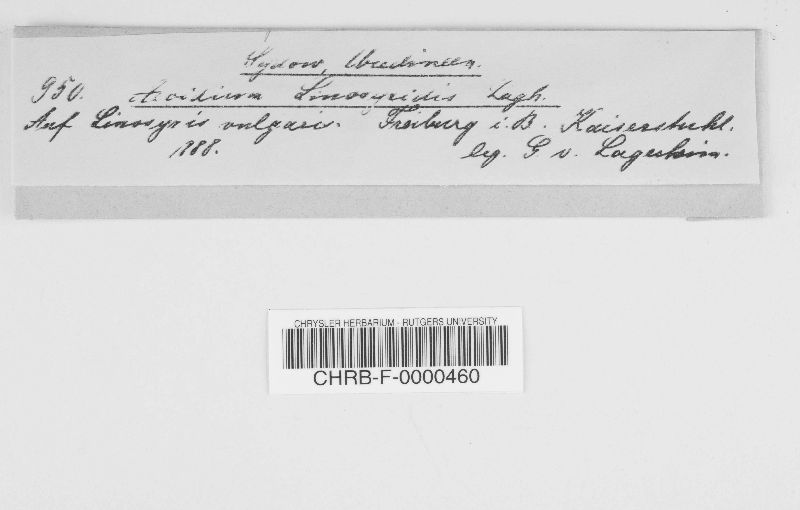 Sydow, Uredineen.
950. Aecidium Linosyridis Lagh.
Auf Linosyris vulgaris. Freiburg i. B. Kaiserstuhl.
1888. leg. G. v. Lagerheim.
CHRYSLER HERBARIUM - RUTGERS UNIVERSITY
CHRB-F-0000460